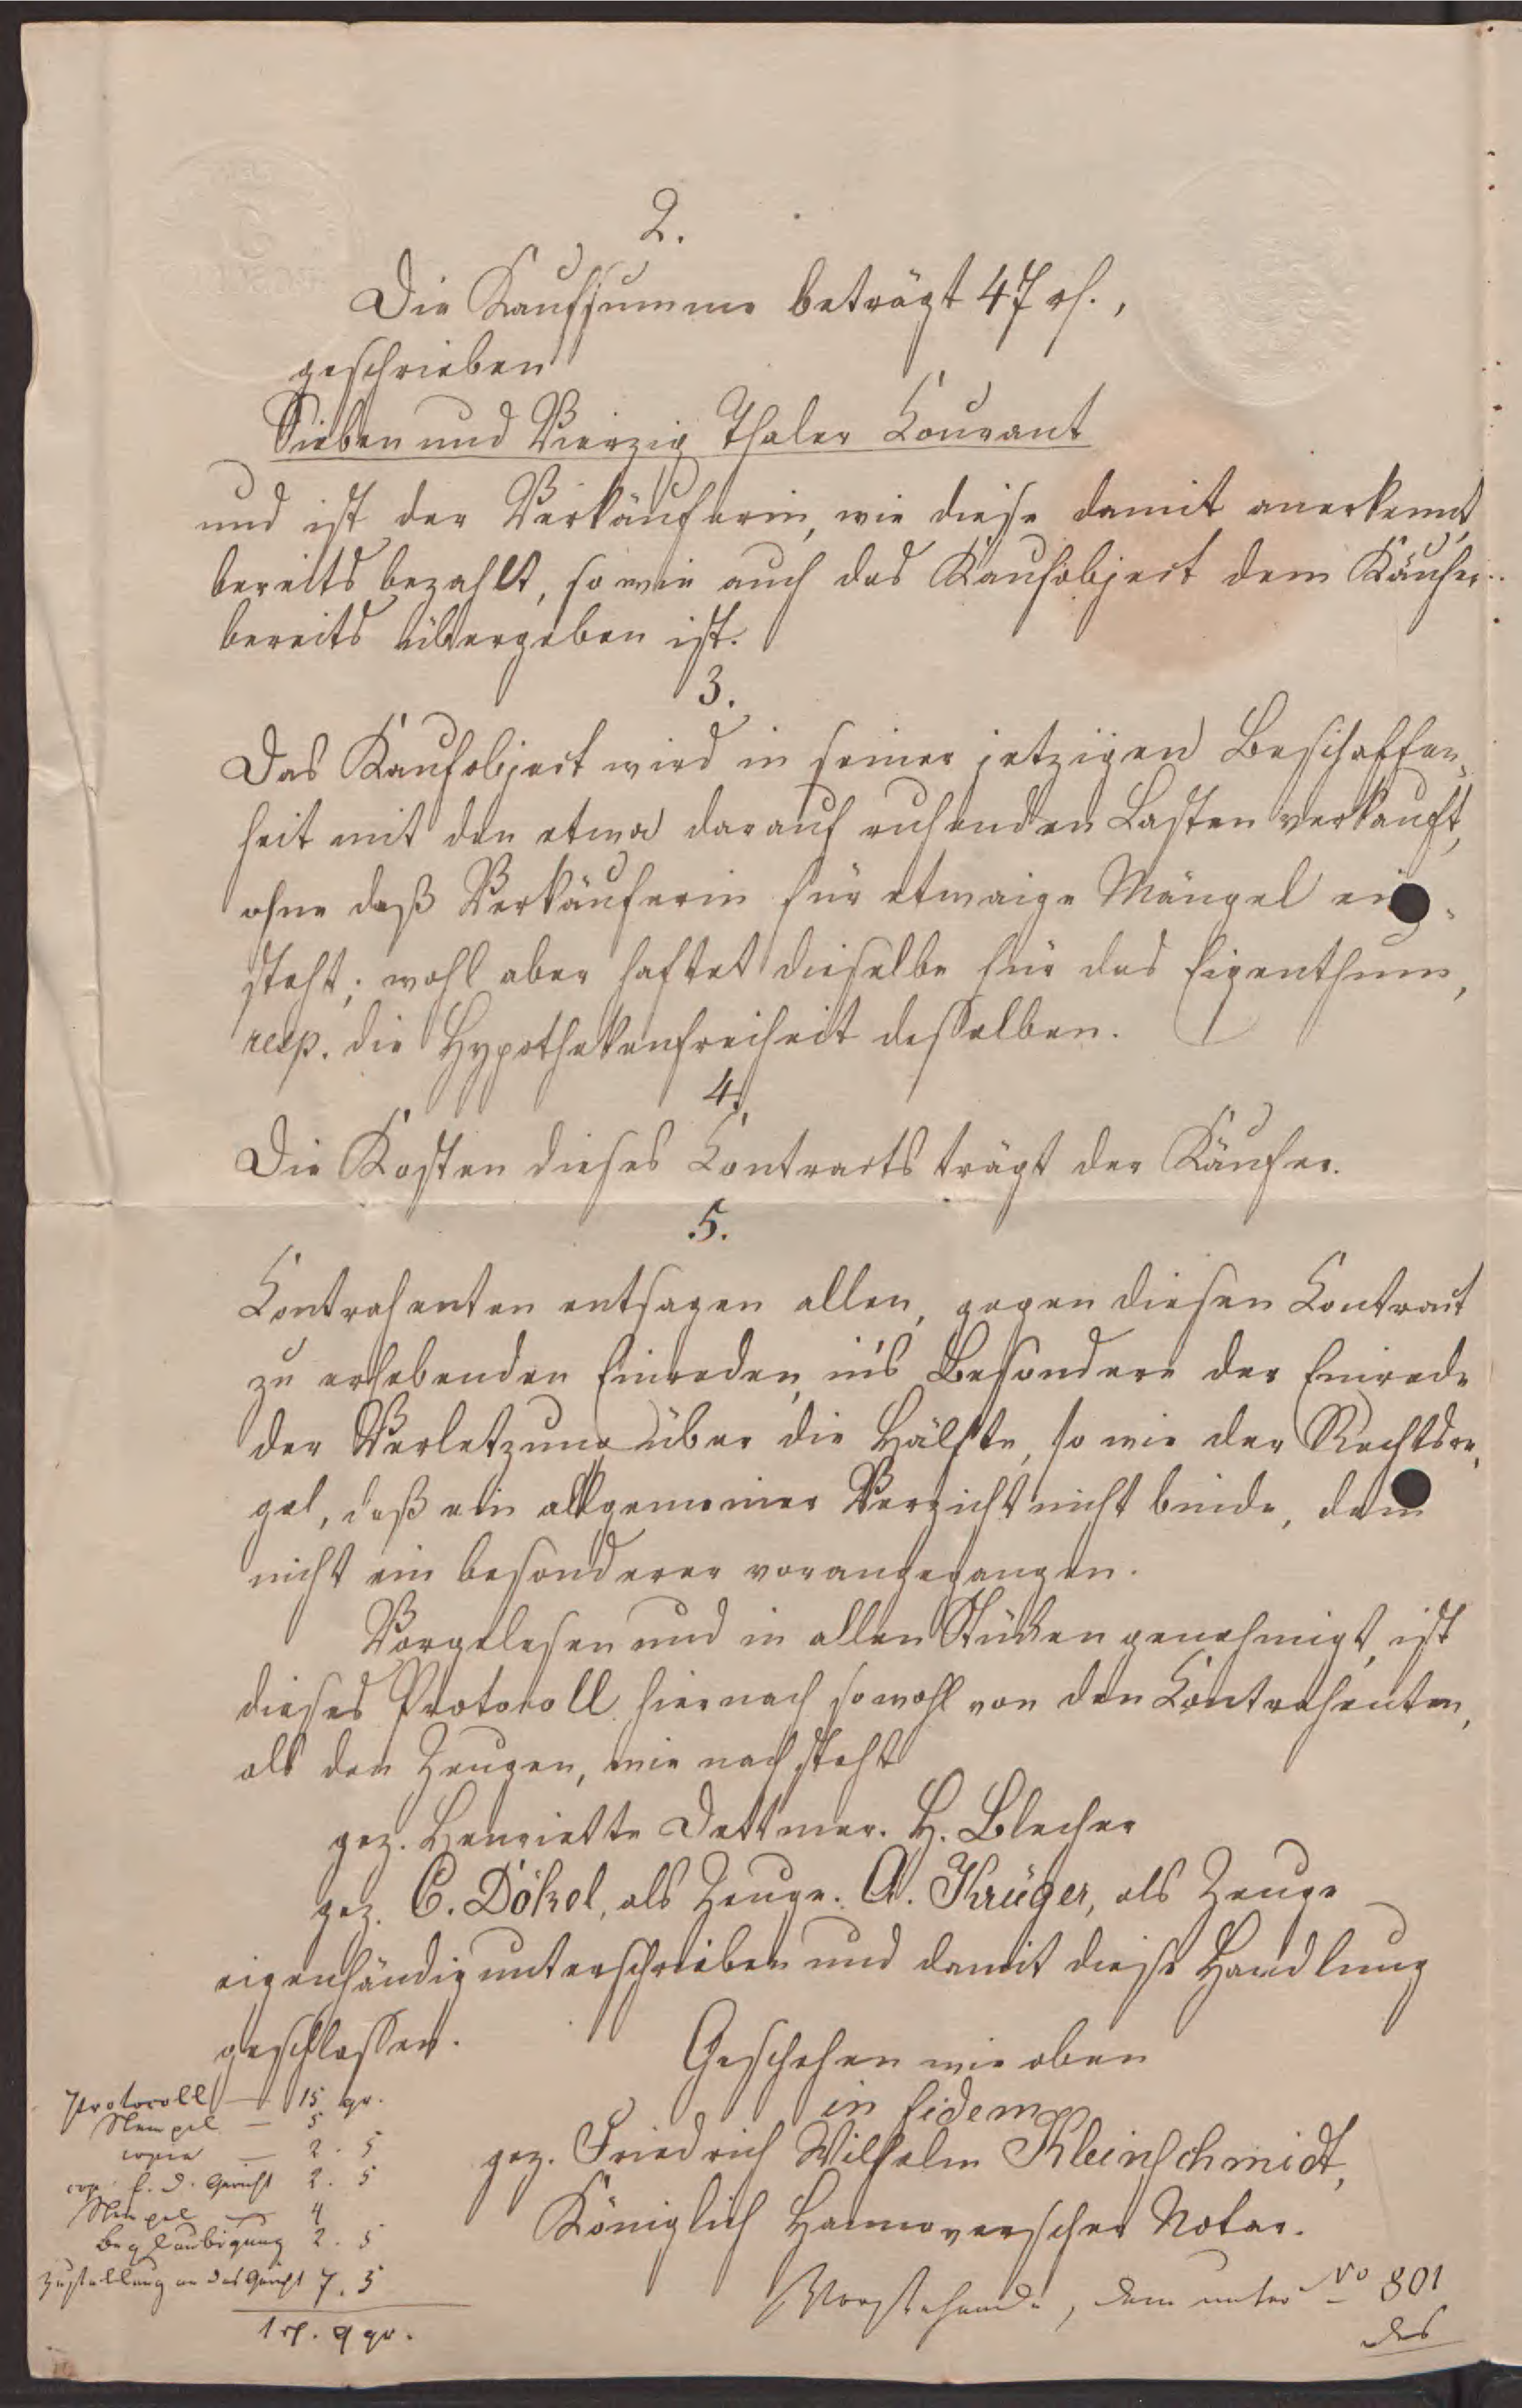 2.
Die Kaufsumme beträgt 47 rh.,
geschrieben
Sieben und Vierzig Thaler Courant
und ist der Verkäuferin, wie diese damit anerkennt,
bereits bezahlt, so wie auch das Kaufobject dem Käufer
bereits übergeben ist.
3.
Das Kaufobject wird in seiner jetzigen Beschaffen-
heit mit den etwa darauf ruhenden Lasten verkauft,
ohne daß Verkäuferin für etwaige Mängel ein-
steht; wohl aber haftet dieselbe für das Eigenthum,
resp. die Hypothekenfreiheit desselben.
4.
Die Kosten dieses Contracts trägt der Käufer.
5.
Contrahenten entsagen allen, gegen diesen Contract
zu erhebenden Einreden, in's Besondere der Einrede
der Verletzung über die Hälfte, so wie der Rechtsre-
gel, daß ein allgemeiner Verzicht nicht binde, dem
nicht ein besonderer vorangegangen.
Vorgelesen und in allen Stücken genehmigt, ist
dieses Protocoll hiernach sowohl von den Contrahenten,
als den Zeugen, wie nachsteht
gez. Henriette Dettmer. H. Blecher
gez. C. Dökel, als Zeuge. A. Krüger, als Zeuge
eigenhändig unterschrieben und damit diese Handlung
geschlossen.
Geschehen wie oben
in fidem
gez. Friedrich Wilhelm Kleinschmidt,
Königlich Hannoverscher Notar.
Protocoll — 15 gr.
Stempel — 5
copia — 2. 5
cop. f. d. Gericht 2. 5
Stempel — 4
Beglaubigung 2. 5
Zustellung an das Gericht 7. 5
1 rh. 9 gr.
Vorstehende, dem unter No 801
des